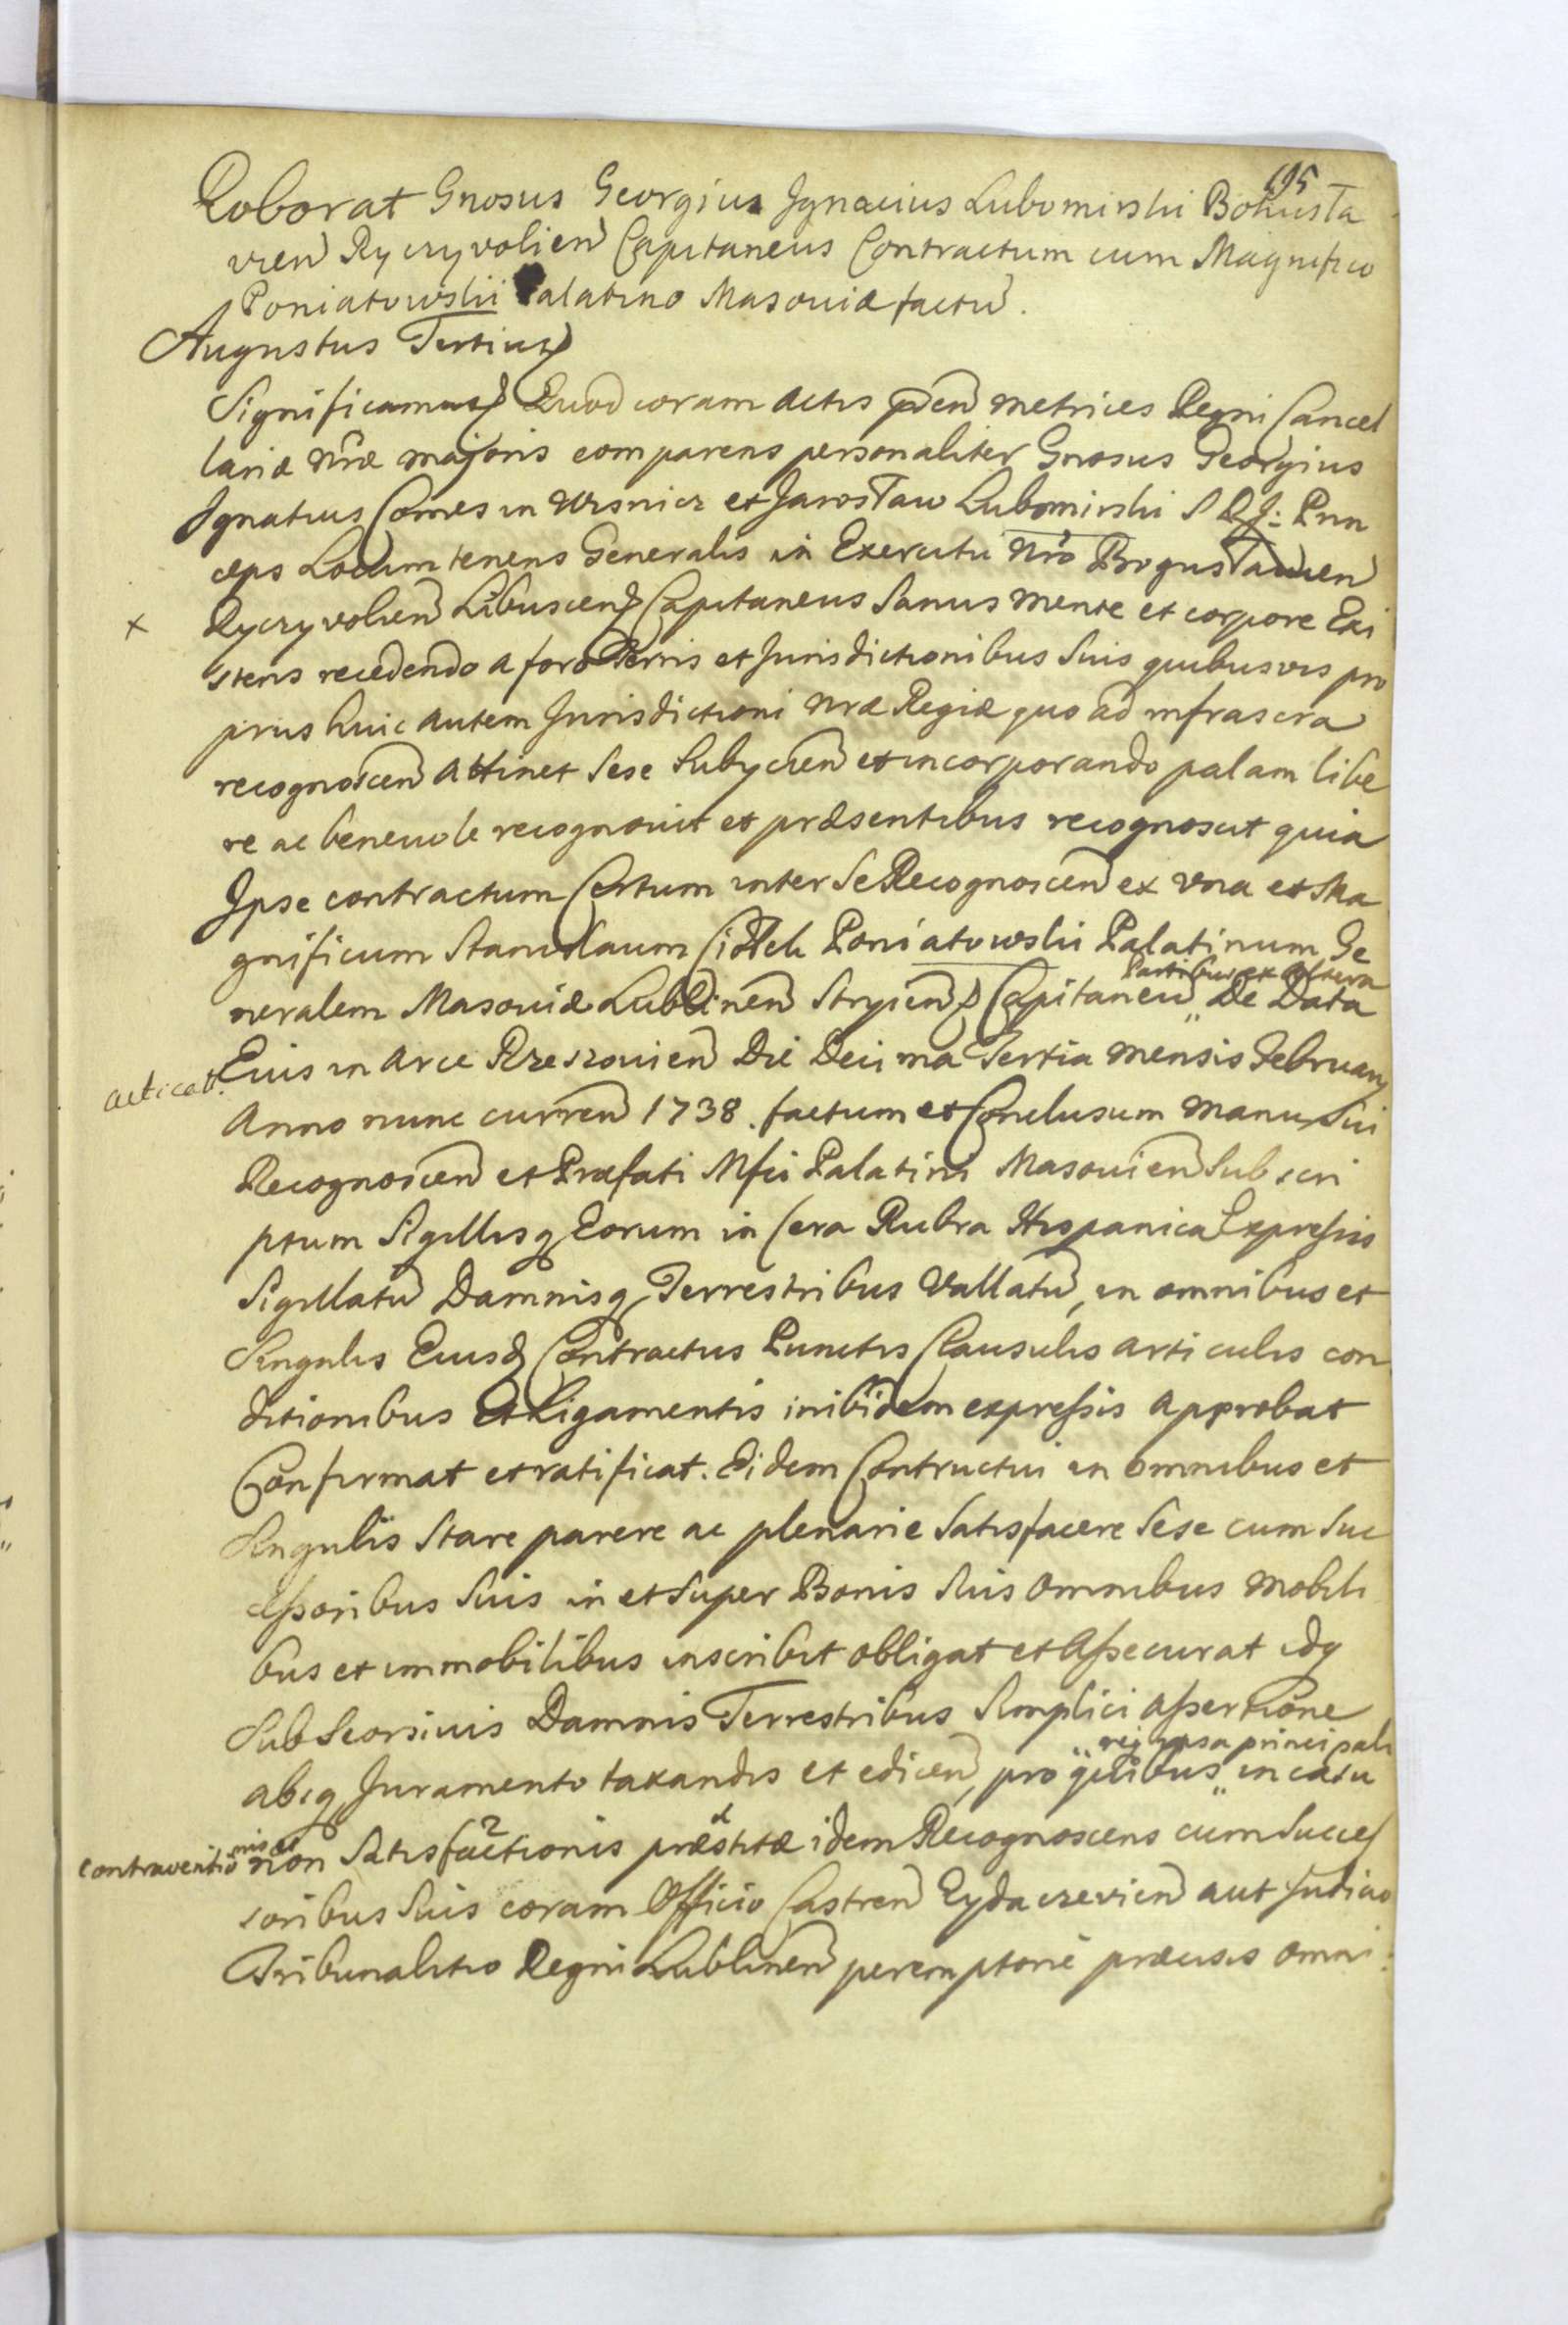 195
Roborat Gnosus Georgius Ignacius Lubomirski Bohusła
vien Ryczyvolien Capitaneus Contractum cum Magnifico
Poniatowski Palatino Masoviæ factū.
Augustus Tertius
Significamus Quod coram actis pñen metrices Regni Cancel
lariæ nræ majoris comparens personaliter Gnosus Georgius
Ignatius Comes in Wisnicz et Jarosław Lubomirski S R J: Prin
ceps Locum tenens Generalis in Exercitu nrō Bogusłavien
x Ryczyvolien Libuscen Capitaneus Sanus mente et corpore Exi
stens recedendo a foro Terris et Jurisdictionibus Suis quibusvis pro
prijs huic autem Jurisdictioni nræ Regiæ quo ad infrascra
recognoscen attinet Sese Subijcien et incorporando palam libe
re ac benevole recognovit et præsentibus recognoscit quia
Ipse contractum Certum inter Se Recognoscen ex una et Ma
gnificum Stanislaum Ciołek Poniatowski Palatinum Ge
Partibus ex altera
neralem Masoviæ Lublinen Stryien Capitaneū „ De Data
Eius in Arce Rzeszovien Die Decima Tertia mensis Februarij
acticatt.
Anno nunc curren 1738. factum et Conclusum manu Sui
Recognoscen et Præfati Mfci Palatini Masovien Subscri
ptum Sigillisq Eorum in Cera Rubra Hispanica Expressis
Sigillatū Damnisq Terrestribus Vallatū, in omnibus et
Singulis Eiusd Contractus Punctis Clausulis articulis con
ditionibus et Ligamentis inibidem expressis approbat
Confirmat et ratificat. Eidem Contractui in omnibus et
Singulis Stare parere ac plenarie Satisfacere Sese cum Suc
cessoribus Suis in et Super Bonis Suis omnibus mobili
bus et immobilibus inscribit obligat et assecurat idq
Sub Seorsivis Damnis Terrestribus Simplici assertione
rej ipsa principali
absq Juramento taxandis et edicen, pro quibus „ in casu
contraventionis et non Satisfactionis præstitæ idem Recognoscens cum Succes
soribus Suis coram Officio Castren Zydaczevien aut Judicio
Tribunalitio Regni Lublinen peremptorie præcisis omni: